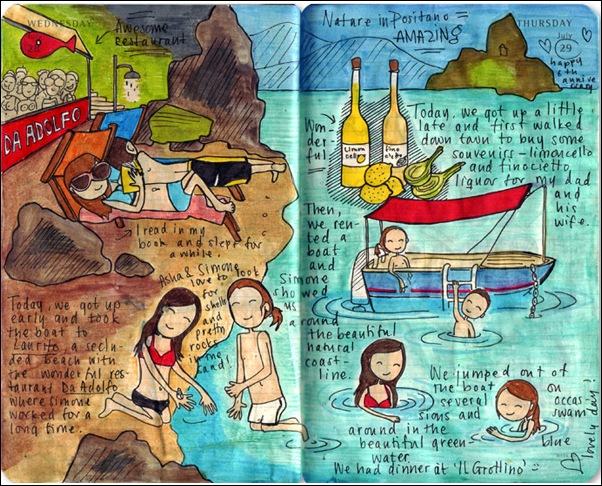 WEDNESDAY
Awesome
restaurant
DA ADOLFO
I read in my
book and slept for
a while.
Asha & Simone
love to look
for
shells
and
pretty
rocks
in the
sand!
Today, we got up
early and took
the boat to
Laurito, a seclu-
ded beach with
the wonderful res-
taurant Da Adolfo
where Simone
worked for a
long time.
THURSDAY
July
29
happy
6th
annive
rsary
Nature in Positano =
AMAZING
Won-
der-
ful
Limon
cello
fino
cietto
Today, we got up a little
late and first walked
down town to buy some
souvenirs - limoncello
and finocietto
liquor for my dad
and
his
wife.
Then,
we ren-
ted a
boat
and
Simone
showed
us
around
the beautiful
natural
coast-
line.
We jumped out of
the boat on
several occas-
sions and swam
around in the
beautiful green blue
water.
We had dinner at 'Il Grottino' :)
lovely day!